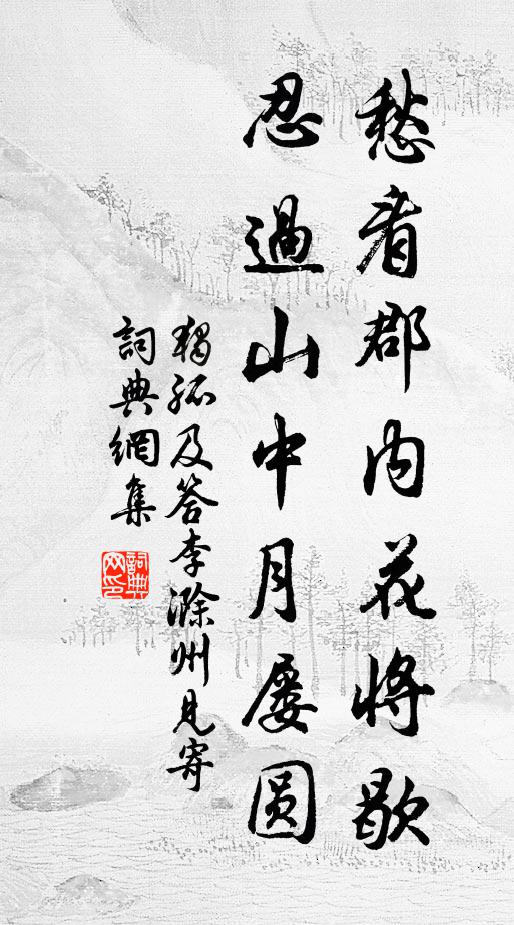 愁看郡内花將歇
忍過山中月屢圆
獨孤及答李滁州見寄
詞典網集
詞典网印